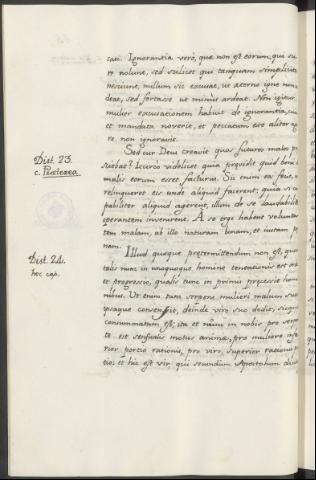 cari. Ignorantia vero, que non est eorum, qui sci-
re nolunt, sed scilicet qui tanquam simpliciter
nesciunt, nullum sic excusat, ut aeterno igne non
deat, sed fortasse ut minus ardeat. Non igitur
mulier excusationem habuit de ignorantia, cum
et mandata noverit, et peccatum esse aliter age-
re non ignoravit.
Dist. 23.
c. Praeterea
Sed cur Deus creavit quos futuros malos pre
sciebat? Licuit videlicet quia previdit quid boni de
malis eorum esset
relinqueret eis unde aliquid facerent; quia si cul
pabiliter aliquid agerent, illum de se laudabiliter
operantem invenirent. A se ergo habent volunta-
tem malam, ab illo naturam bonam, et iustam poe
nam.
Dist. 24.
hoc cap.
Illud quoque pretermittendum non est, quod
talis nunc in unoquoque homine tentationis est ordo
et progressio, qualis tunc in primis precessit homi
nibus. Ut enim tum serpens mulieri malum suasit
ipsaque consensit, deinde viro suo dedit, sicque
consummatum est; ita et nunc in nobis pro serpen
te est sensualis motus animae, pro muliere infe
rior portio rationis, pro viro, superior rationis por
tio; et hic est vir, qui secundum Apostolum